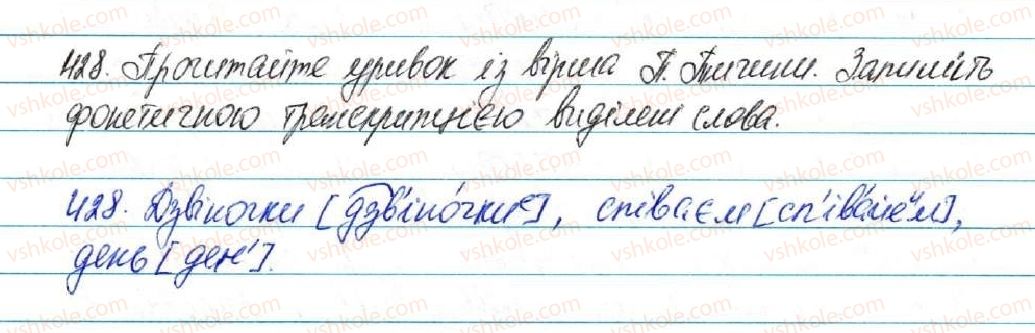 428. Прочитайте уривок із вірша П. Тичини. Запишіть
фонетичною транскрипцією виділені слова.
428. Дзвіночки [дзв'іно́чкиᵉ], співаєм [сп'іва́йеᴵм],
день [ден'].